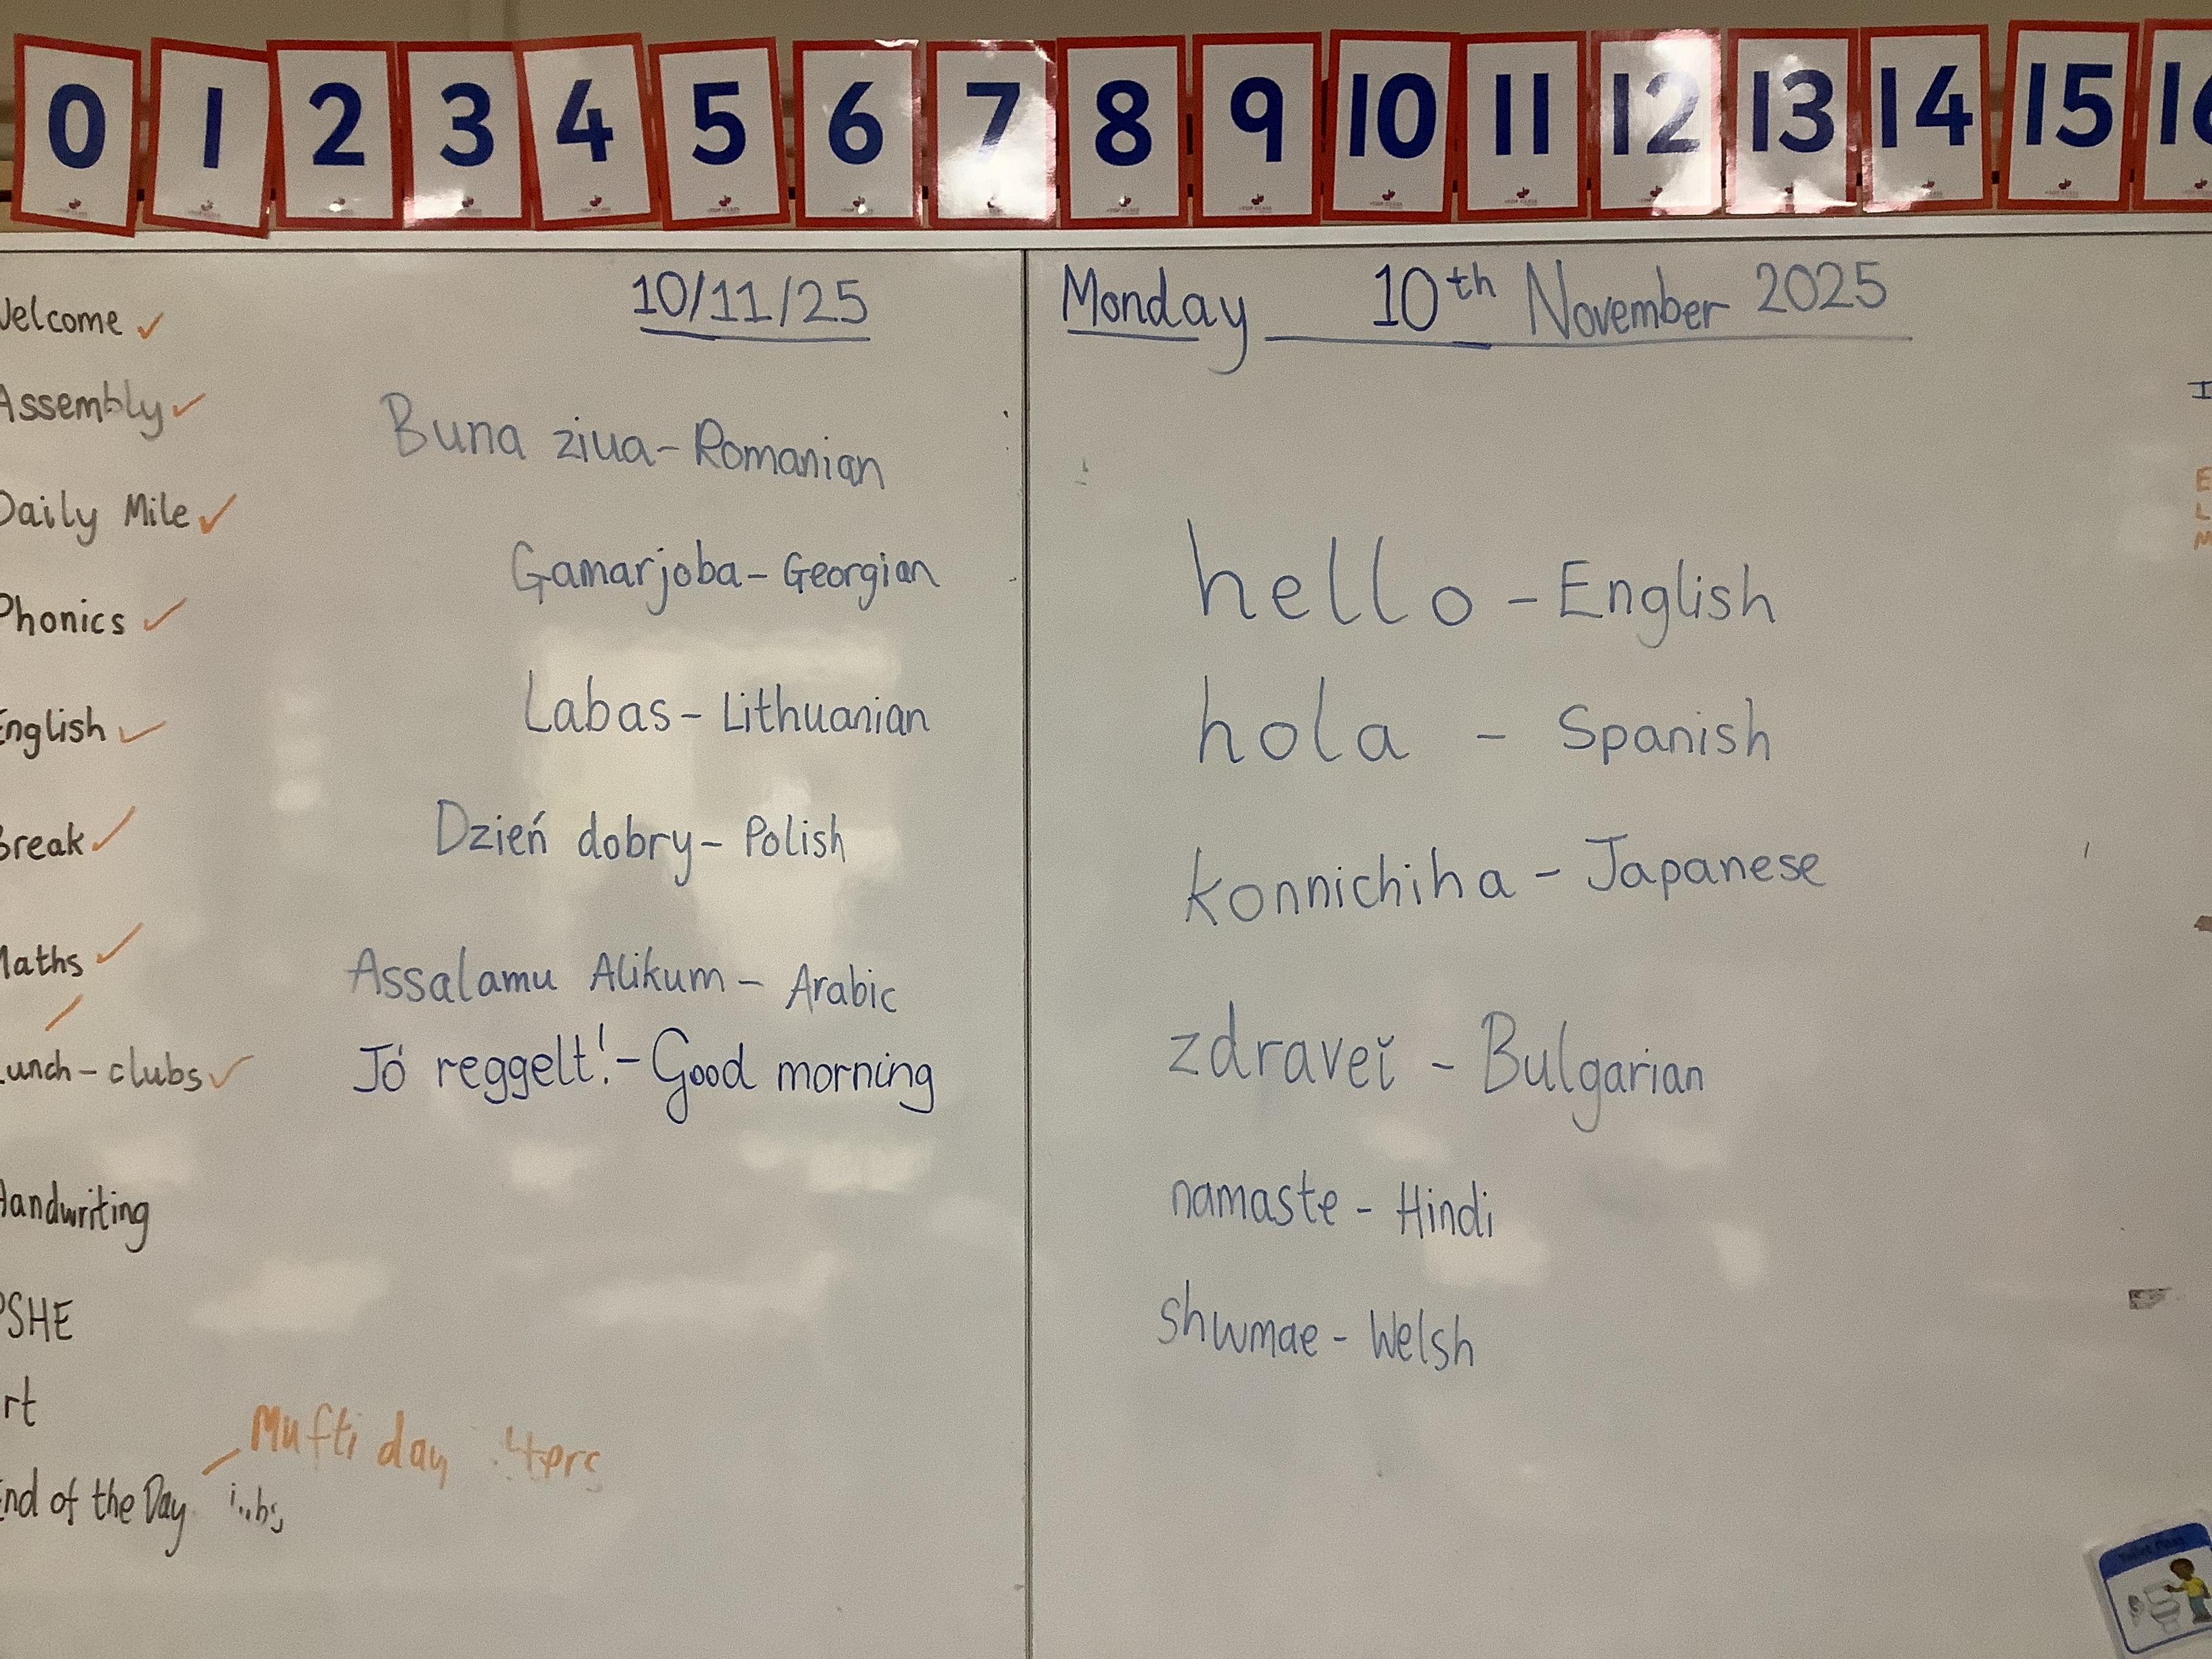 0 1 2 3 4 5 6 7 8 9 10 11 12 13 14 15 16
Welcome ✓
Assembly ✓
Daily Mile ✓
Phonics ✓
English ✓
Break ✓
Maths ✓
Lunch - clubs ✓
Handwriting
PSHE
Art
End of the Day
Mufti day
10/11/25
Buna ziua - Romanian
Gamarjoba - Georgian
Labas - Lithuanian
Dzień dobry - Polish
Assalamu Alikum - Arabic
Jó reggelt! - Good morning
Monday 10th November 2025
hello - English
hola - Spanish
konnichiha - Japanese
zdraveĭ - Bulgarian
namaste - Hindi
shwmae - Welsh
E
L
M